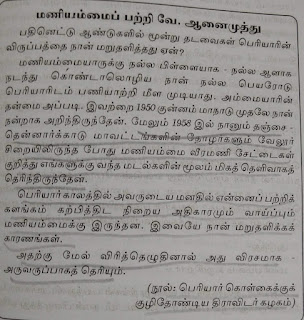 மணியம்மைப் பற்றி வே. ஆனைமுத்து
பதினெட்டு ஆண்டுகளில் மூன்று தடவைகள் பெரியாரின்
விருப்பத்தை நான் மறுதளித்தது ஏன்?
மணியம்மையாருக்கு நல்ல பிள்ளையாக - நல்ல ஆளாக
நடந்து கொண்டாலொழிய நான் நல்ல பெயரோடு
பெரியாரிடம் பணியாற்றி மீள முடியாது. அம்மையாரின்
தன்மை அப்படி. இவற்றை 1950 குன்னம் மாநாடு முதலே நான்
நன்றாக அறிந்திருந்தேன். மேலும் 1958 இல் நானும் தஞ்சை -
தென்னார்க்காடு மாவட்டங்களின் தோழர்களும் வேலூர்
சிறையிலிருந்த போது மணியம்மை வீரமணி சேட்டைகள்
குறித்து எங்களுக்கு வந்த மடல்களின் மூலம் மிகத் தெளிவாகத்
தெரிந்திருந்தேன்.
பெரியார்காலத்தில் அவருடைய மனதில் என்னைப் பற்றிக்
களங்கம் கற்பித்திட நிறைய அதிகாரமும் வாய்ப்பும்
மணியம்மைக்கு இருந்தன. இவையே நான் மறுதலிக்கக்
காரணங்கள்.
அதற்கு மேல் விரித்தெழுதினால் அது விரசமாக -
அருவருப்பாகத் தெரியும்.
(நூல்: பெரியார் கொள்கைக்குக்
குழிதோண்டிய திராவிடர் கழகம்)